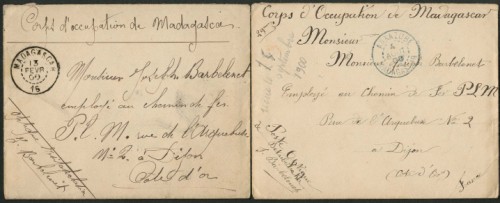 Corps d'occupation de Madagascar
MADAGASCAR
13
FEVR
00
15
Monsieur Joseph Barbelenet
employé au chemin de fer
P.L.M. rue de l'Arquebuse
No 2. à Dijon
Côte d'or
Corps d'Occupation de Madagascar
Monsieur
Monsieur Barbelenet
Employé au Chemin de Fer PLM
Rue de l'Arquebuse No 2
à Dijon
(Côte d'Or)
1900